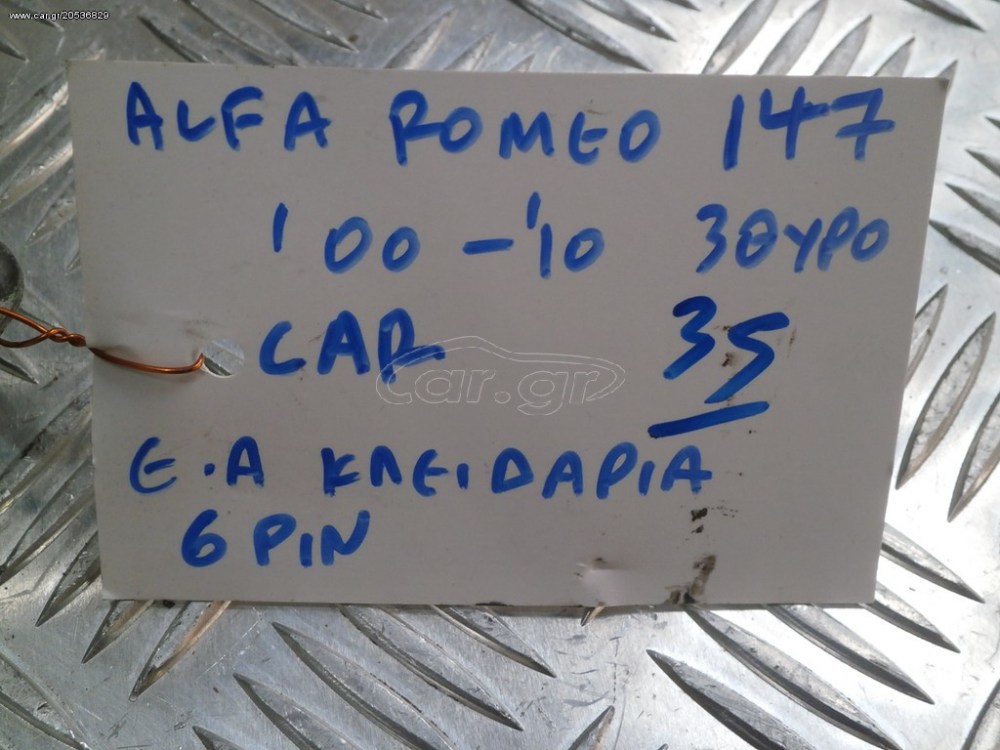 www.car.gr/20536829
ALFA ROMEO 147
'00-'10 3ΘΥΡΟ
CAR 35
car.gr
Ε.Α ΚΛΕΙΔΑΡΙΑ
6 PIN